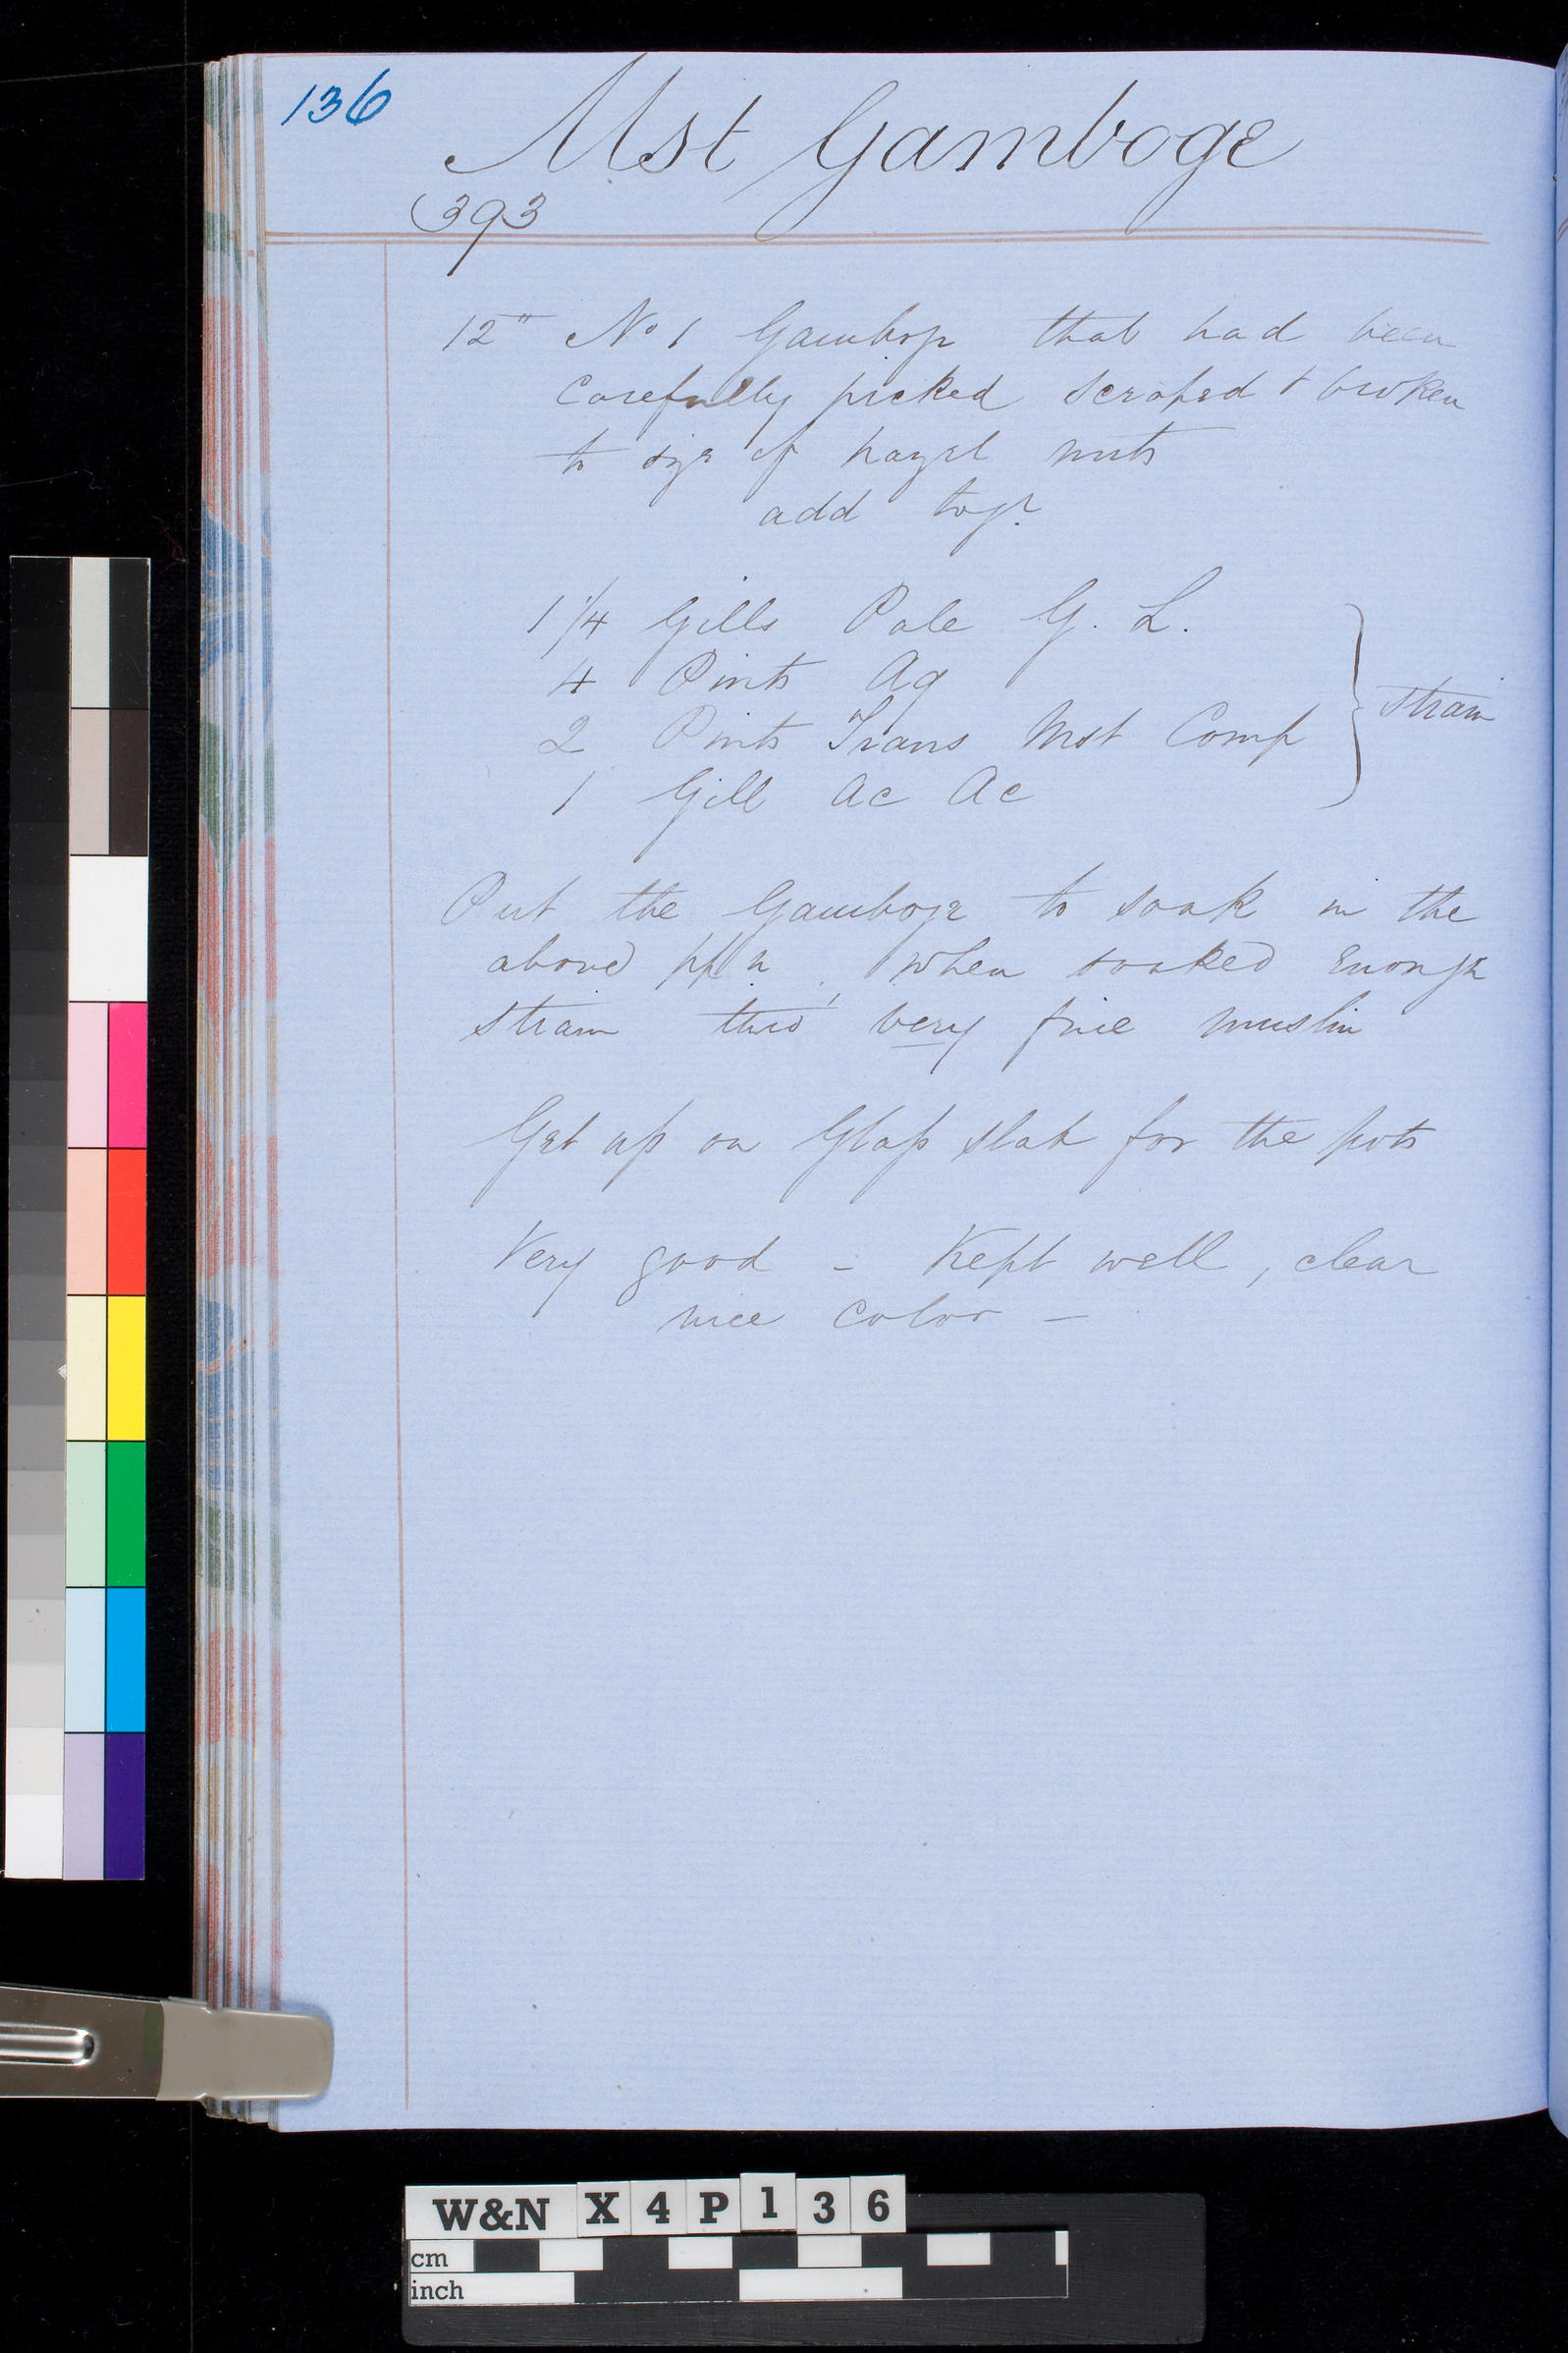 136
Mst Gamboge
(393
12" No 1 Gamboge that had been
carefully picked scraped & broken
to size of hazel nuts
add togr
1 1/4 Gills Pale G. L.
4 Pints Aq
2 Pints Trans Mst Comp } strain
1 Gill Ac Ac
Put the Gamboge to soak in the
above when soaked enough
strain thro' very fine muslin
Get up on Glass slab for the pots
Very good - Kept well, clear
nice color -
W&N X 4 P 1 3 6
cm
inch